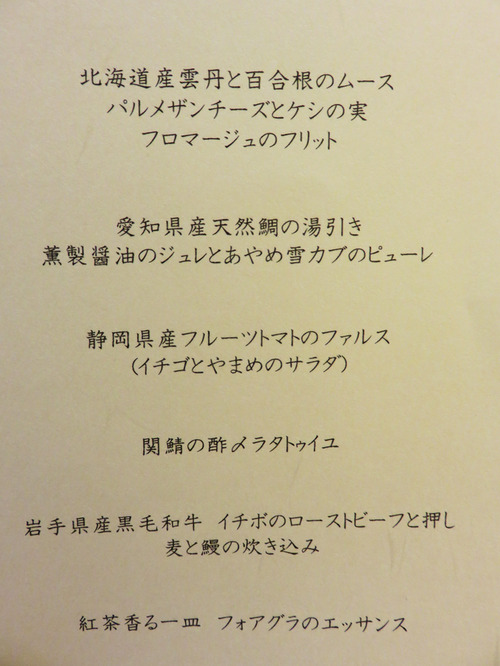 北海道産雲丹と百合根のムース
パルメザンチーズとケシの実
フロマージュのフリット
愛知県産天然鯛の湯引き
薫製醤油のジュレとあやめ雪カブのピューレ
静岡県産フルーツトマトのファルス
(イチゴとやまめのサラダ)
関鯖の酢〆ラタトゥイユ
岩手県産黒毛和牛 イチボのローストビーフと押し
麦と鰻の炊き込み
紅茶香る一皿 フォアグラのエッサンス